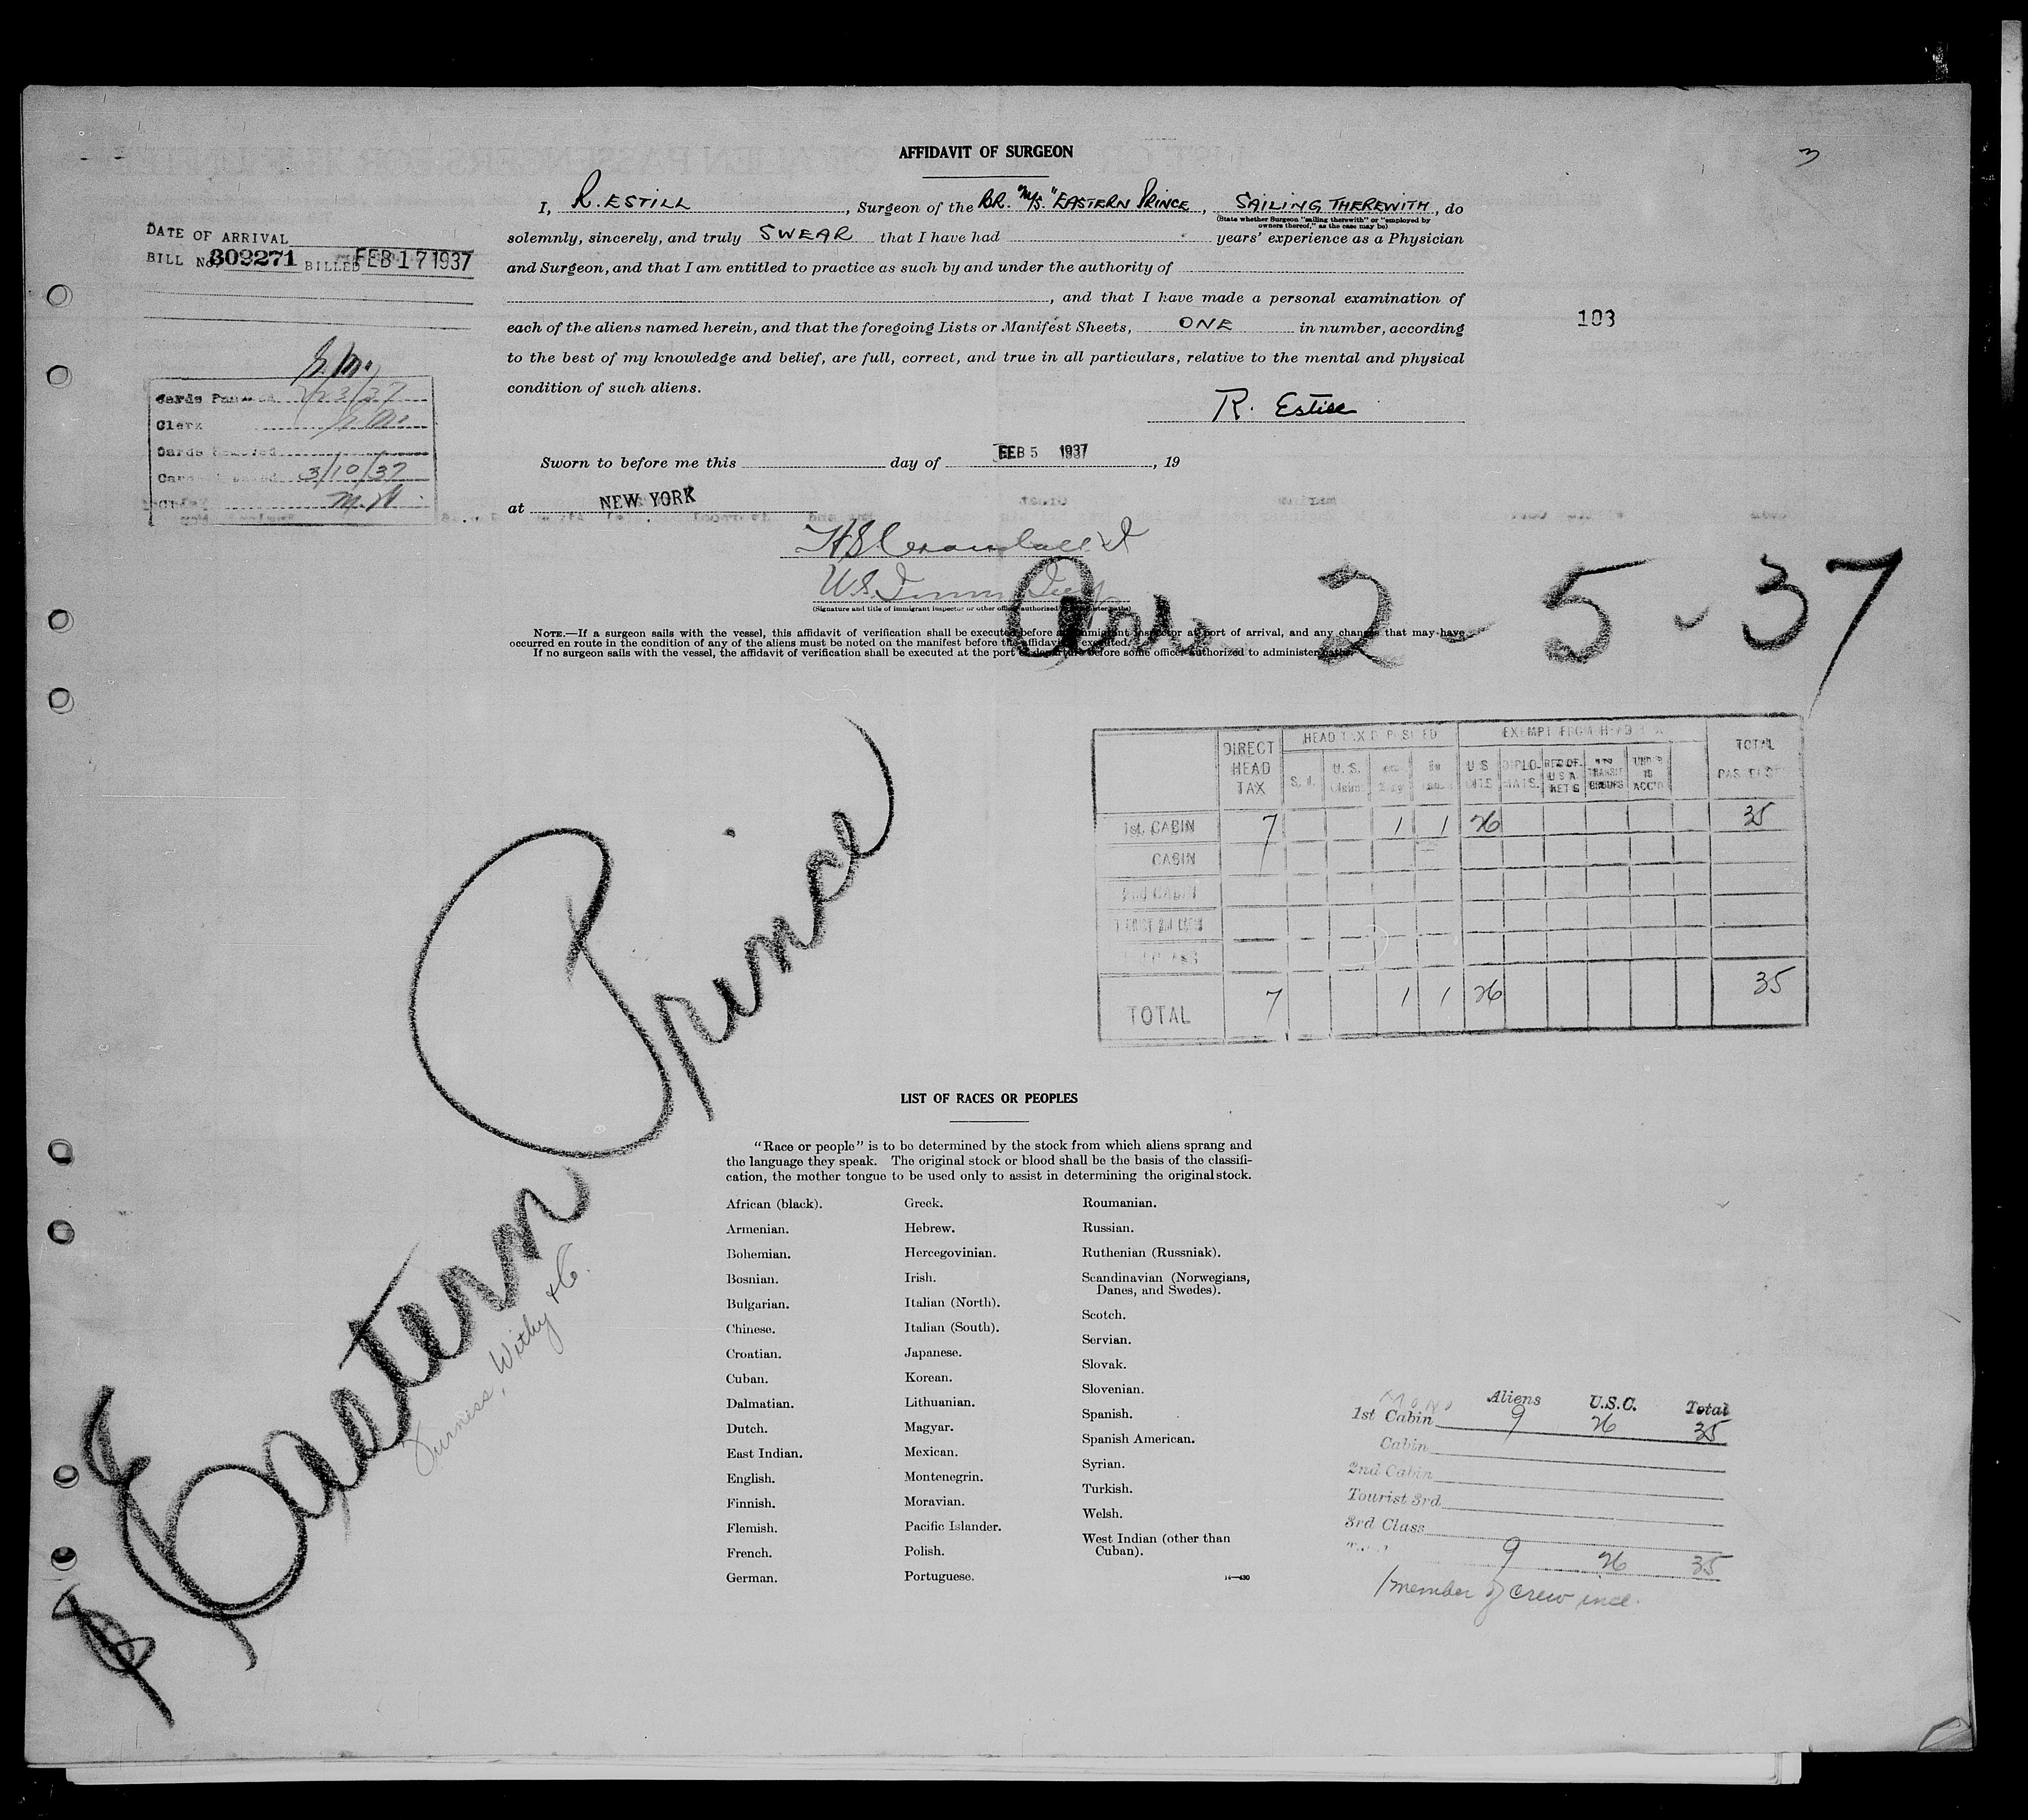 AFFIDAVIT OF SURGEON
3
I, R. ESTILL, Surgeon of the BR. "M/S." "EASTERN PRINCE, SAILING THEREWITH, do
(State whether Surgeon "sailing therewith" or "employed by
owners thereof," as the case may be)
solemnly, sincerely, and truly SWEAR that I have had years' experience as a Physician
and Surgeon, and that I am entitled to practice as such by and under the authority of
, and that I have made a personal examination of
each of the aliens named herein, and that the foregoing Lists or Manifest Sheets, ONE in number, according
to the best of my knowledge and belief, are full, correct, and true in all particulars, relative to the mental and physical
condition of such aliens.
R. Estill
Sworn to before me this day of FEB 5 1937, 19
at NEW YORK
DATE OF ARRIVAL
BILL No. 309271 BILLED FEB 17 1937
103
Clerk
3/10/37
M.H.
(Signature and title of immigrant inspector or other officer authorized to administer oaths)
Arr. 2-5-37
NOTE.—If a surgeon sails with the vessel, this affidavit of verification shall be executed before an immigrant inspector at port of arrival, and any changes that may have
occurred en route in the condition of any of the aliens must be noted on the manifest before the affidavit is executed.
If no surgeon sails with the vessel, the affidavit of verification shall be executed at the port of departure before some officer authorized to administer oaths.
DIRECT HEAD TAX
HEAD TAX DEPOSITED
EXEMPT FROM HEAD TAX
TOTAL
S. I. U. S. Claims U S CITS DIPLO-MATS. RES OF U S A RET'G TRANSIT GROUPS UNDER 16 ACC'D
1st. CABIN 7 1 1 26 35
CABIN
2nd CABIN
TOTAL 7 1 1 26 35
Eastern Prince
Furness, Withy & Co.
LIST OF RACES OR PEOPLES
"Race or people" is to be determined by the stock from which aliens sprang and
the language they speak. The original stock or blood shall be the basis of the classifi-
cation, the mother tongue to be used only to assist in determining the original stock.
African (black).
Armenian.
Bohemian.
Bosnian.
Bulgarian.
Chinese.
Croatian.
Cuban.
Dalmatian.
Dutch.
East Indian.
English.
Finnish.
Flemish.
French.
German.
Greek.
Hebrew.
Hercegovinian.
Irish.
Italian (North).
Italian (South).
Japanese.
Korean.
Lithuanian.
Magyar.
Mexican.
Montenegrin.
Moravian.
Pacific Islander.
Polish.
Portuguese.
Roumanian.
Russian.
Ruthenian (Russniak).
Scandinavian (Norwegians,
Danes, and Swedes).
Scotch.
Servian.
Slovak.
Slovenian.
Spanish.
Spanish American.
Syrian.
Turkish.
Welsh.
West Indian (other than
Cuban).
14—430
Aliens U.S.C. Total
1st Cabin 9 26 35
Cabin
2nd Cabin
Tourist 3rd
3rd Class
9 26 35
1 member of crew incl.